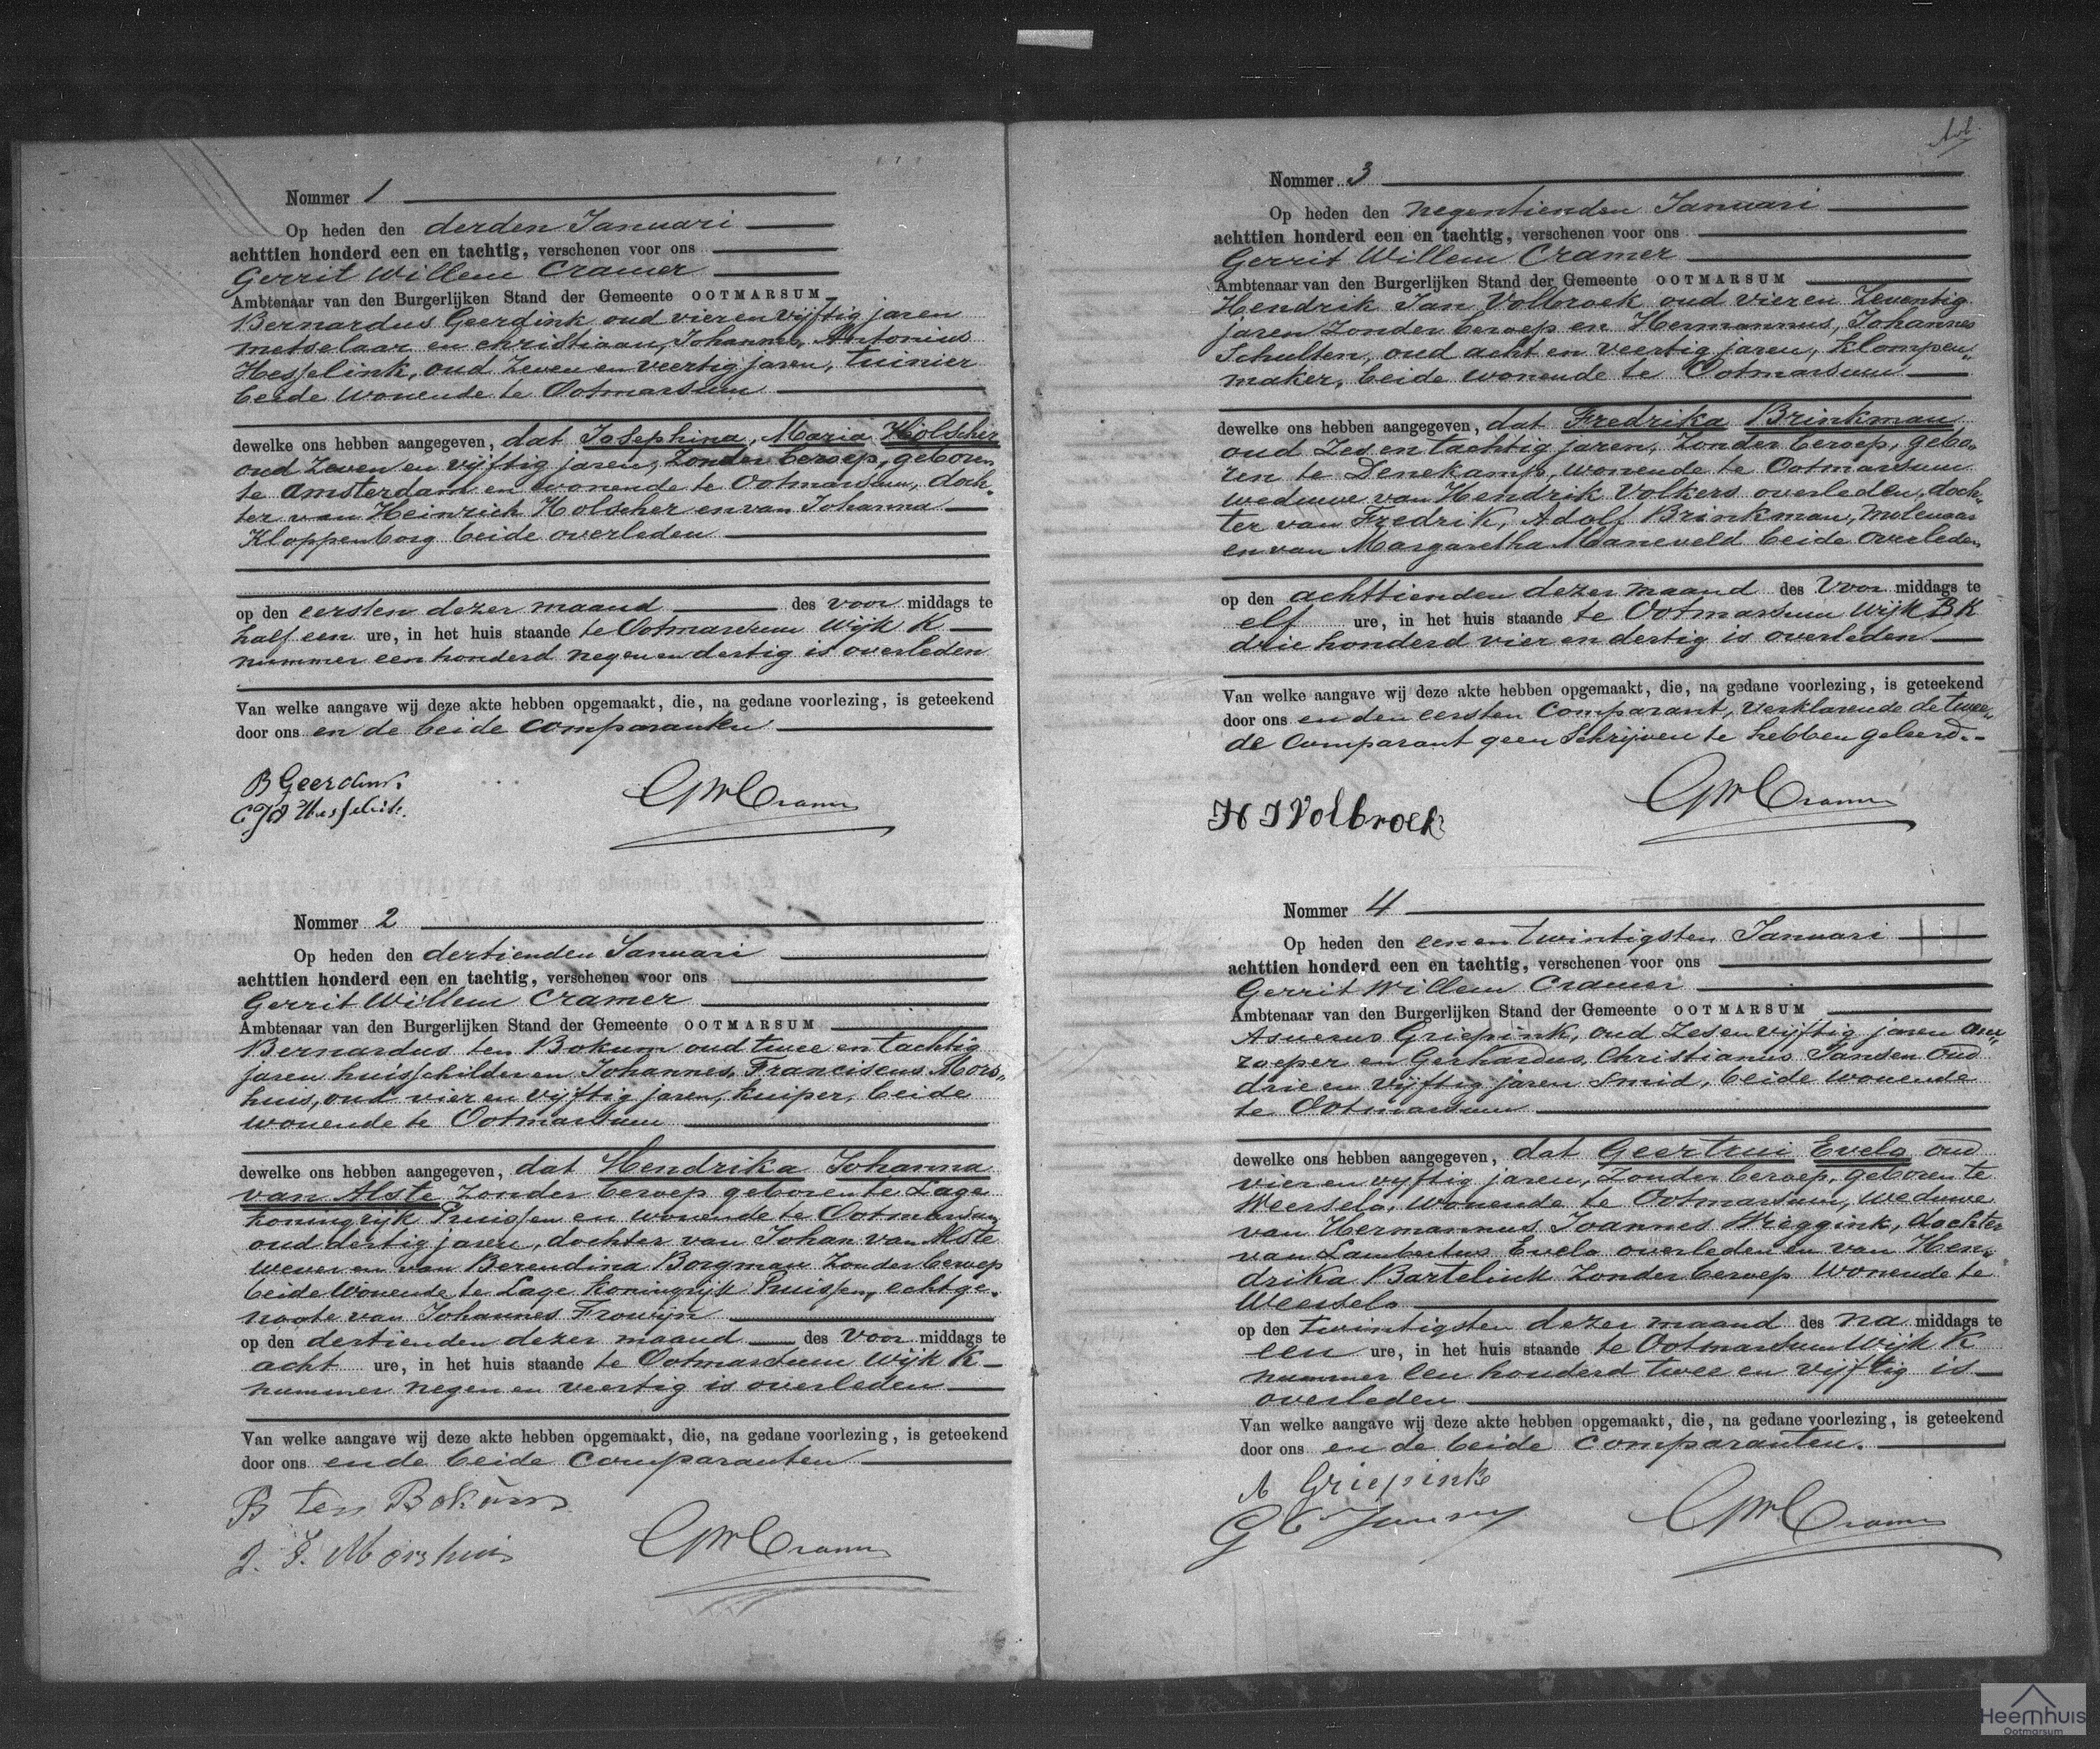 Nommer 1
Op heden den derden Januari
achttien honderd een en tachtig, verschenen voor ons
Gerrit Willem Cramer
Ambtenaar van den Burgerlijken Stand der Gemeente OOTMARSUM
Bernardus Geerdink oud vier en vijftig jaren
metselaar en Christiaan, Johannes, Antonius
Hesselink, oud zeven en veertig jaren, tuinier
beide wonende te Ootmarsum
dewelke ons hebben aangegeven, dat Josephina, Maria Hölscher
oud zeven en vijftig jaren, zonder beroep, geboren
te Amsterdam en wonende te Ootmarsum, doch-
ter van Heinrich Holscher en van Johanna
Kloppenborg beide overleden
op den eersten dezer maand des voor middags te
half een ure, in het huis staande te Ootmarsum Wijk K
nummer een honderd negen en dertig is overleden
Van welke aangave wij deze akte hebben opgemaakt, die, na gedane voorlezing, is geteekend
door ons en de beide comparanten
B Geerdink
C J A Hesselink.
GWCramer
Nommer 2
Op heden den dertienden Januari
achttien honderd een en tachtig, verschenen voor ons
Gerrit Willem Cramer
Ambtenaar van den Burgerlijken Stand der Gemeente OOTMARSUM
Bernardus ten Bokum oud twee en tachtig
jaren huisschilder en Johannes, Franciscus Mors„
huis, oud vier en vijftig jaren, kuiper, beide
wonende te Ootmarsum
dewelke ons hebben aangegeven, dat Hendrika Johanna
van Alste zonder beroep geboren te Lage
koningrijk Pruissen en wonende te Ootmarsum
oud dertig jaren, dochter van Johan van Alste
wever en van Berendina Borgman zonder beroep
beide wonende te Lage koningrijk Pruissen, echtge-
noote van Johannes Frowijn
op den dertienden dezer maand des voor middags te
acht ure, in het huis staande te Ootmarsum Wijk K
nummer negen en veertig is overleden
Van welke aangave wij deze akte hebben opgemaakt, die, na gedane voorlezing, is geteekend
door ons en de beide comparanten
B ten Bokum
J. F. Morshuis
GWCramer
Nommer 3
Op heden den negentienden Januari
achttien honderd een en tachtig, verschenen voor ons
Gerrit Willem Cramer
Ambtenaar van den Burgerlijken Stand der Gemeente OOTMARSUM
Hendrik Jan Volbroek oud vier en zeventig
jaren zonder beroep en Hermannus, Johannes
Schulten, oud acht en veertig jaren, klompen„
maker, beide wonende te Ootmarsum
dewelke ons hebben aangegeven, dat Fredrika Brinkman
oud zes en tachtig jaren, zonder beroep, gebo„
ren te Denekamp, wonende te Ootmarsum
weduwe van Hendrik Volkers overleden, doch„
ter van Fredrik, Adolf Brinkman, molenaar
en van Margaretha Maneveld beide overleden
op den achttienden dezer maand des Voor middags te
elf ure, in het huis staande te Ootmarsum Wijk B K
drie honderd vier en dertig is overleden
Van welke aangave wij deze akte hebben opgemaakt, die, na gedane voorlezing, is geteekend
door ons en den eersten Comparant, verklarende de twee„
de Comparant geen schrijven te hebben geleerd.-
H J Volbroek
GWCramer
Nommer 4
Op heden den een en twintigsten Januari
achttien honderd een en tachtig, verschenen voor ons
Gerrit Willem Cramer
Ambtenaar van den Burgerlijken Stand der Gemeente OOTMARSUM
Asuerus Griepink, oud zes en vijftig jaren om„
roeper en Gerhardus, Christianus Jansen oud
drie en vijftig jaren smid, beide wonende
te Ootmarsum
dewelke ons hebben aangegeven, dat Geertrui Evelo oud
vier en vijftig jaren, zonder beroep, geboren te
Weerselo, wonende te Ootmarsum, weduwe
van Hermannus Joannes Wieggink, dochter
van Lambertus Evelo overleden en van Hen„
drika Bartelink zonder beroep wonende te
Weerselo
op den twintigsten dezer maand des na middags te
een ure, in het huis staande te Ootmarsum Wijk K
nummer een honderd twee en vijftig is
overleden
Van welke aangave wij deze akte hebben opgemaakt, die, na gedane voorlezing, is geteekend
door ons en de beide comparanten.
A Griepink
G C Jansen
GWCramer
Heemhuis
Ootmarsum